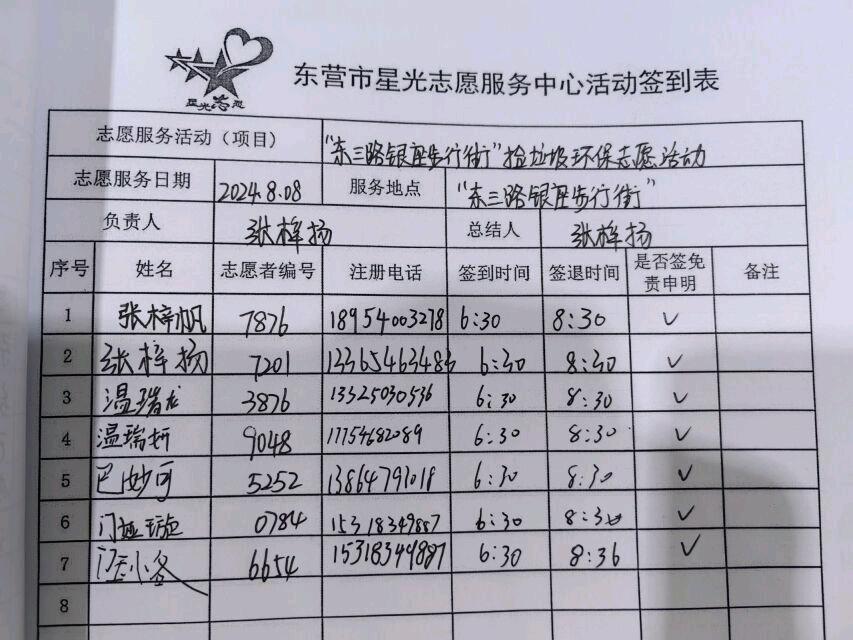 星光志愿
东营市星光志愿服务中心活动签到表
志愿服务活动（项目） "东三路银座步行街"捡垃圾环保志愿活动
志愿服务日期 2024.8.08 服务地点 "东三路银座步行街"
负责人 张梓扬 总结人 张梓扬
序号 姓名 志愿者编号 注册电话 签到时间 签退时间 是否签免责申明 备注
1 张梓帆 7876 18954003278 6:30 8:30 ✓
2 张梓扬 7201 13365463483 6:30 8:30 ✓
3 温瑞龙 3876 13325030536 6:30 8:30 ✓
4 温瑞妍 9048 17754682089 6:30 8:30 ✓
5 巴妙可 5252 13864791018 6:30 8:30 ✓
6 0784 15318349887 6:30 8:30 ✓
7 6654 15318349887 6:30 8:36 ✓
8